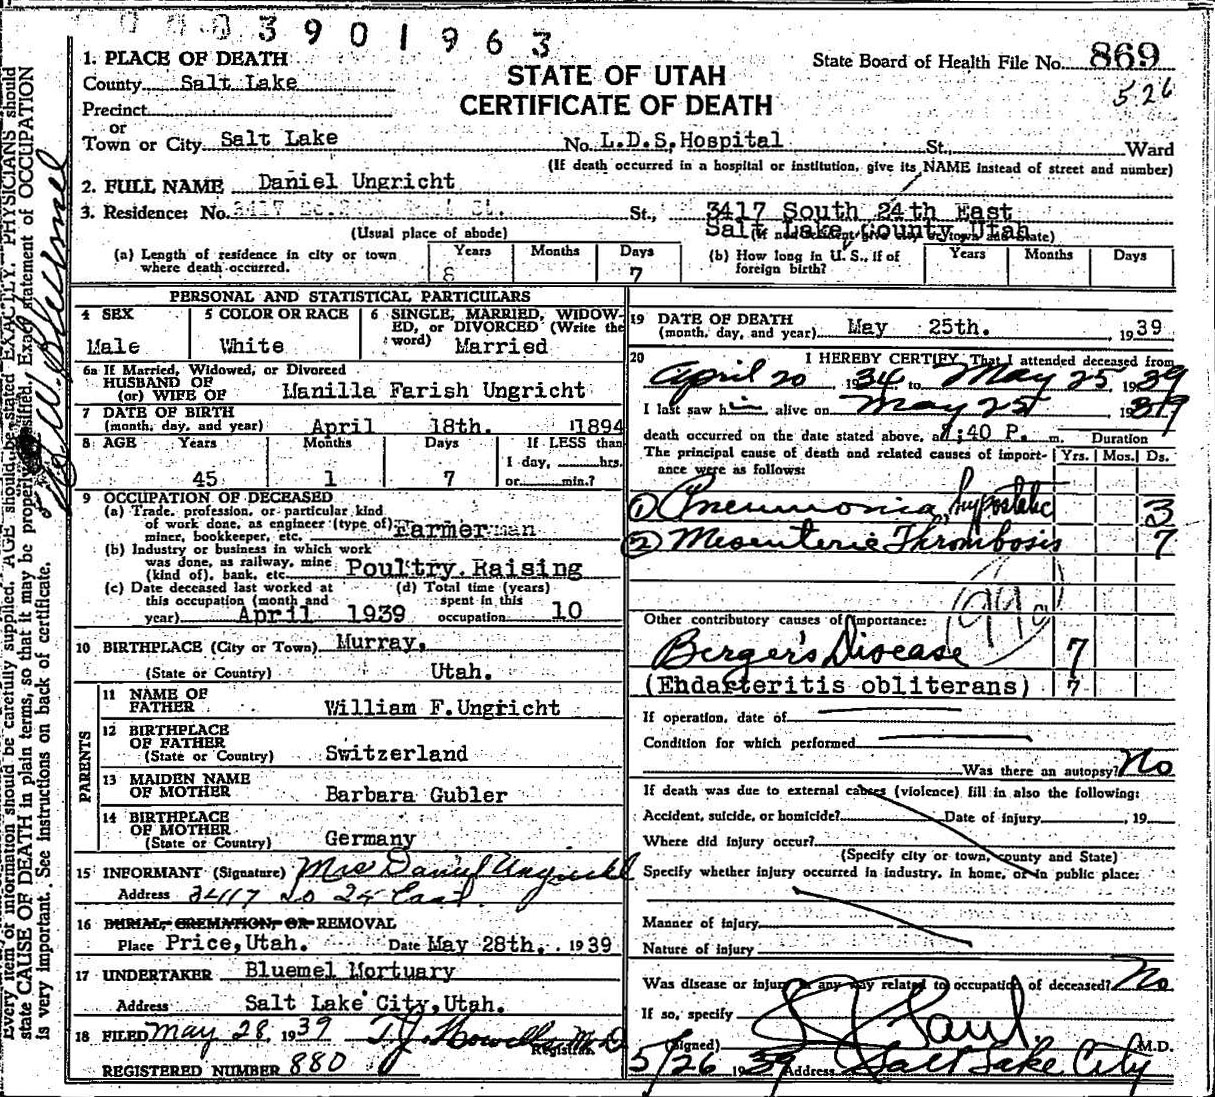 0003901963
State Board of Health File No. 869
526
STATE OF UTAH
CERTIFICATE OF DEATH
1. PLACE OF DEATH
County Salt Lake
Precinct
or
Town or City Salt Lake No. L.D.S. Hospital St. Ward
(If death occurred in a hospital or institution, give its NAME instead of street and number)
2. FULL NAME Daniel Ungricht
3. Residence: No. St., 3417 South 24th East
Salt Lake County, Utah
(Usual place of abode)
(a) Length of residence in city or town where death occurred. Years Months Days 7
(b) How long in U. S., if of foreign birth? Years Months Days
PERSONAL AND STATISTICAL PARTICULARS
4 SEX Male
5 COLOR OR RACE White
6 SINGLE, MARRIED, WIDOWED, or DIVORCED (Write the word) Married
6a If Married, Widowed, or Divorced
HUSBAND OF
(or) WIFE OF Manilla Farish Ungricht
7 DATE OF BIRTH
(month, day, and year) April 18th. 1894
8 AGE Years Months Days If LESS than
45 1 7 1 day, hrs. or min.?
9 OCCUPATION OF DECEASED
(a) Trade, profession, or particular kind
of work done, as engineer (type of)
miner, bookkeeper, etc. Farmer man
(b) Industry or business in which work
was done, as railway, mine
(kind of), bank, etc. Poultry Raising
(c) Date deceased last worked at
this occupation (month and
year) April 1939
(d) Total time (years)
spent in this
occupation 10
10 BIRTHPLACE (City or Town) Murray,
(State or Country) Utah.
PARENTS
11 NAME OF
FATHER William F. Ungricht
12 BIRTHPLACE
OF FATHER
(State or Country) Switzerland
13 MAIDEN NAME
OF MOTHER Barbara Gubler
14 BIRTHPLACE
OF MOTHER
(State or Country) Germany
15 INFORMANT (Signature) Mrs Daniel Ungricht
Address 3417 So 24 East
16 BURIAL, CREMATION, OR REMOVAL
Place Price, Utah. Date May 28th. 1939
17 UNDERTAKER Bluemel Mortuary
Address Salt Lake City, Utah.
18 FILED May 28, 1939 T.J. Howells M.D
Registrar.
REGISTERED NUMBER 880
19 DATE OF DEATH
(month, day, and year) May 25th. 1939
20 I HEREBY CERTIFY, That I attended deceased from
April 20 1934 to May 25 1939
I last saw him alive on May 25 1939
death occurred on the date stated above, at 40 P. m. Duration
The principal cause of death and related causes of importance were as follows: Yrs. Mos. Ds.
① Pneumonia, hypostatic 3
② Mesenteric Thrombosis 7
Other contributory causes of importance:
Berger's Disease 7
(Endarteritis obliterans) 7
If operation, date of
Condition for which performed
Was there an autopsy? No
If death was due to external causes (violence) fill in also the following:
Accident, suicide, or homicide? Date of injury , 19
Where did injury occur?
(Specify city or town, county and State)
Specify whether injury occurred in industry, in home, or in public place:
Manner of injury
Nature of injury
Was disease or injury in any way related to occupation of deceased? No
If so, specify
(Signed) Paul M.D.
5/26 1939 Address Salt Lake City
Every item of information should be carefully supplied. AGE should be stated EXACTLY. PHYSICIANS should
state CAUSE OF DEATH in plain terms, so that it may be properly classified. Exact statement of OCCUPATION
is very important. See instructions on back of certificate.